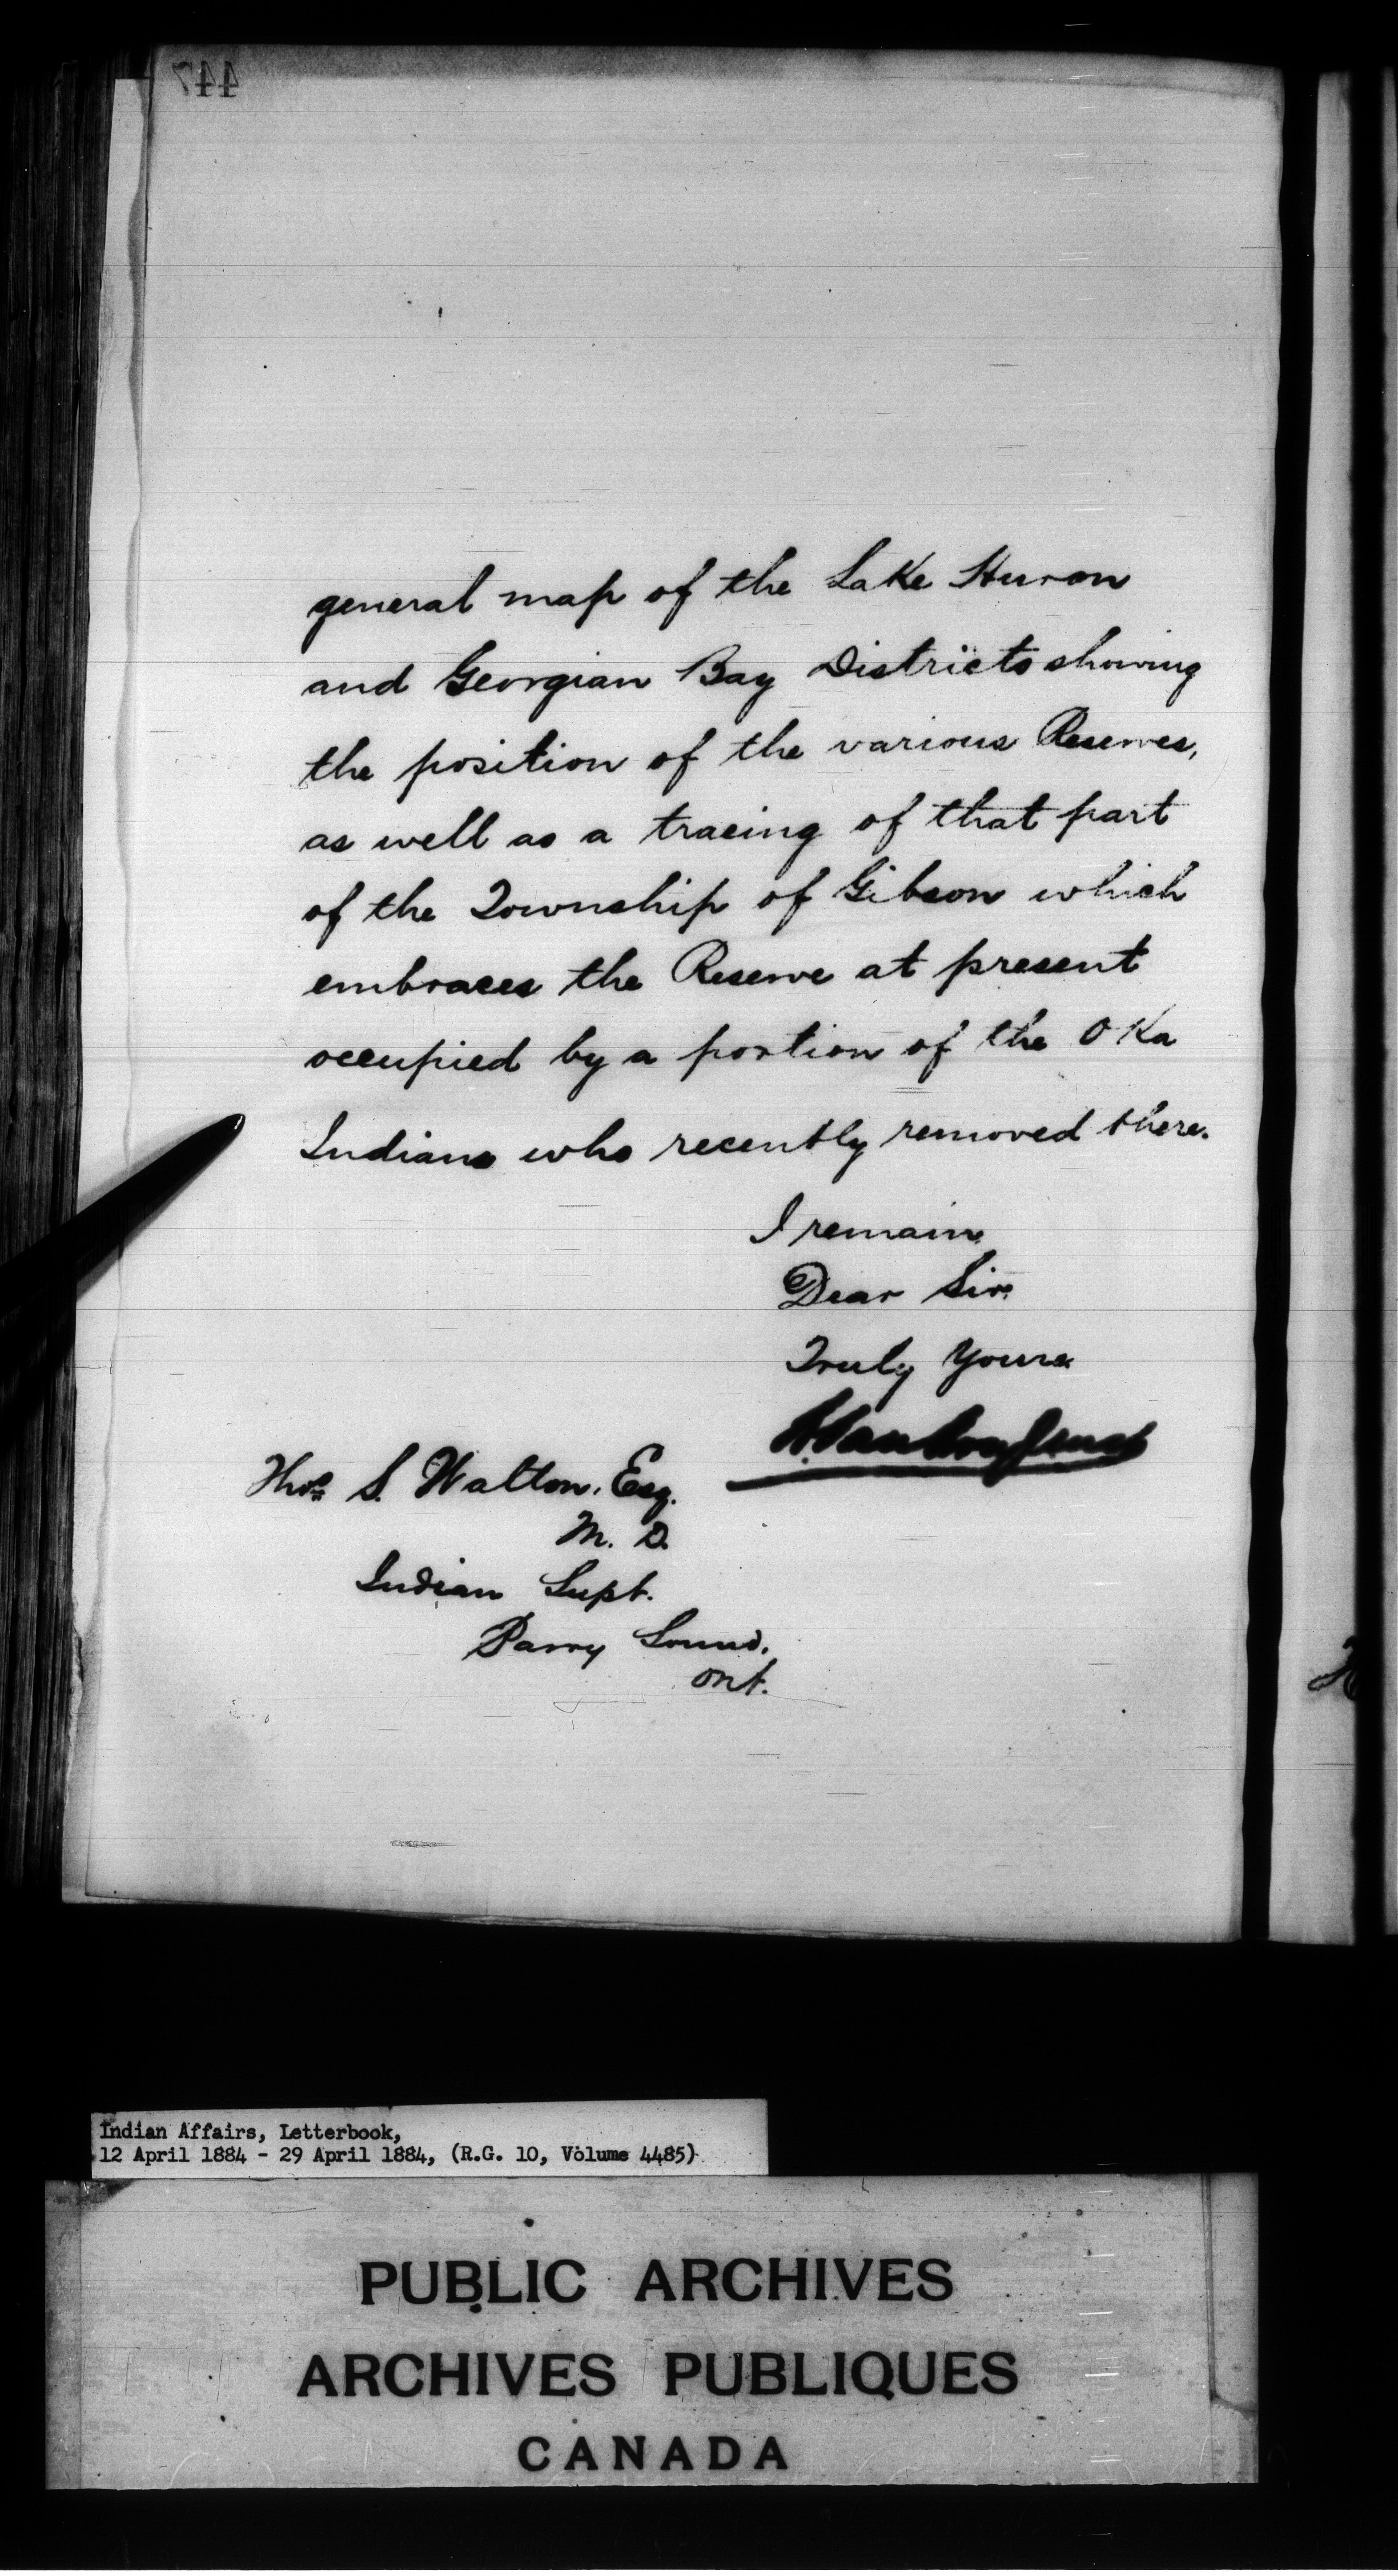 447
general map of the Lake Huron
and Georgian Bay Districts showing
the position of the various Reserves,
as well as a tracing of that part
of the Township of Gibson which
embraces the Reserve at present
occupied by a portion of the Oka
Indians who recently removed there.
I remain
Dear Sir
Truly Yours
Thos S. Walton, Esq.
M. D.
Indian Supt.
Parry Sound,
Ont.
Indian Affairs, Letterbook,
12 April 1884 - 29 April 1884, (R.G. 10, Volume 4485)
PUBLIC ARCHIVES
ARCHIVES PUBLIQUES
CANADA